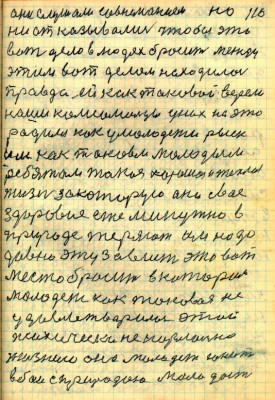 они слушали совниманием но 116
ни отказывали чтобы эть
вот дело в людях бросит между
этим вот делом находилос
правда ей как таковой верем
наши комсомолцу уних на это
как умолодежи риск
им как таковы молодым
ребятам такая хорошая
жизн закоторую они свае
здоровие сте минутно в
природе теряют им надо
давно эту завеит это вот
место бросит вкоторая
молодеж как токовая не
удовлетварили этой
психически не нормално
жизнею она молодеж
вбои сприродаю молодост